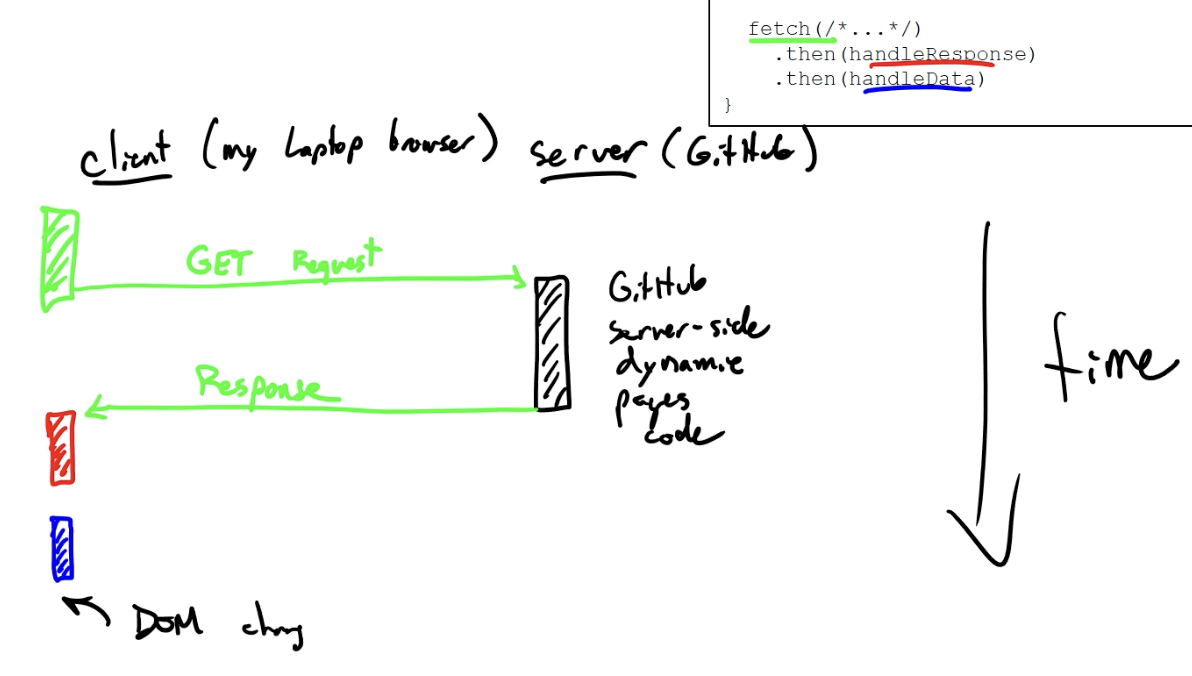 fetch(/*...*/)
.then(handleResponse)
.then(handleData)
}
client (my Laptop browser) server (GitHub)
GET Request
GitHub
server-side
dynamic
pages
code
Response
time
DOM chang